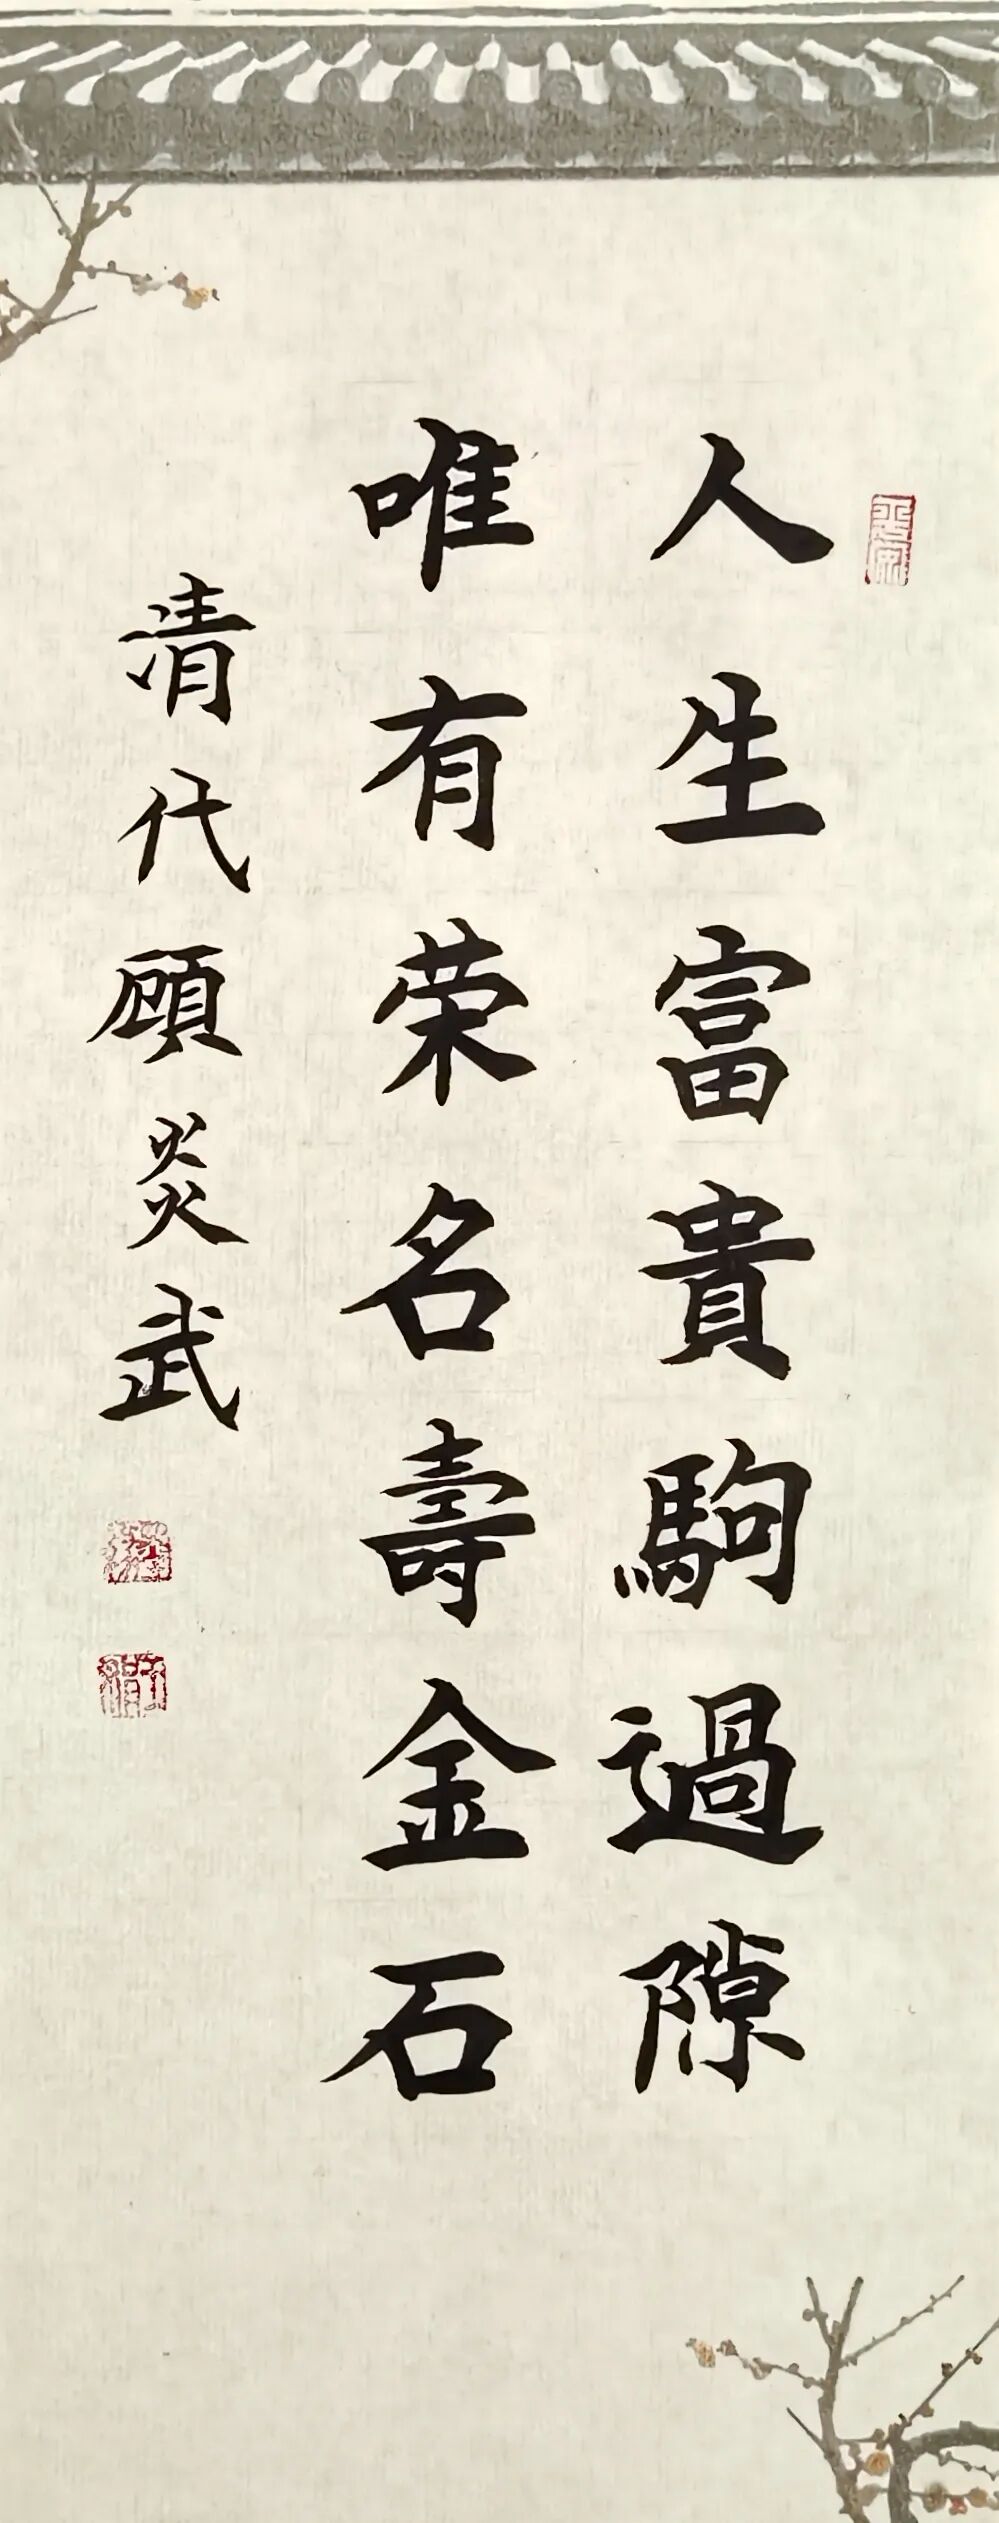 人生富貴駒過隙
唯有荣名壽金石
清代顾炎武